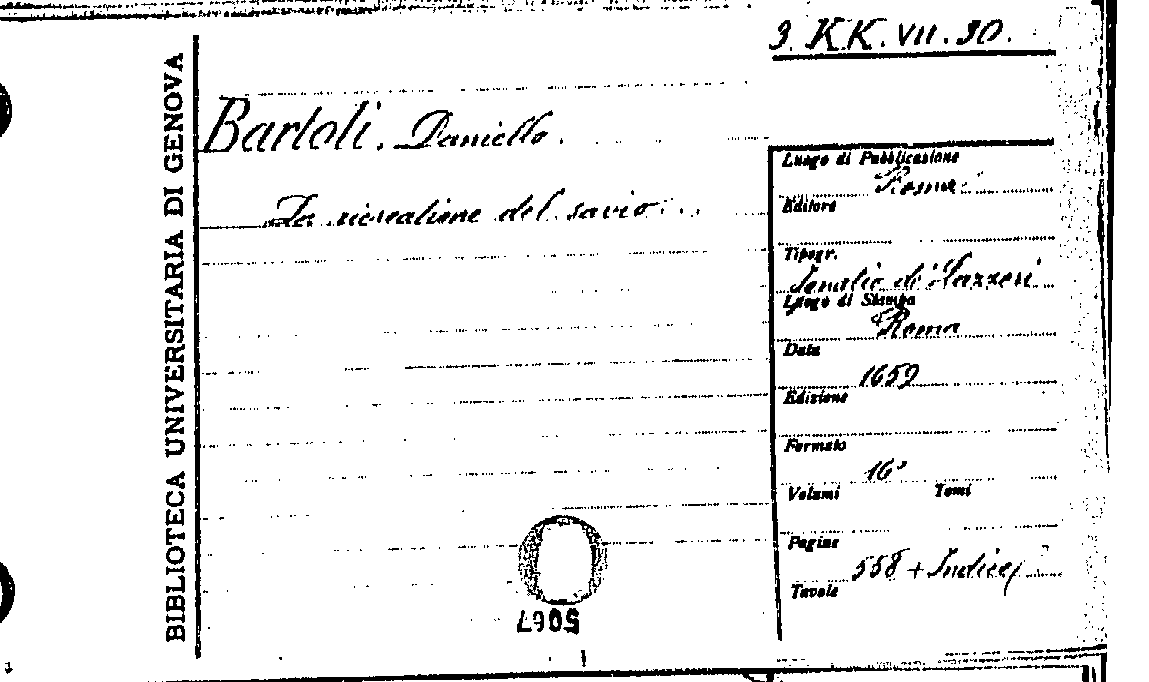 3. KK. VII. 30.
BIBLIOTECA UNIVERSITARIA DI GENOVA
Bartoli. Daniello.
La ricreatione del savio...
Luogo di Pubblicazione
Roma
Editore
Tipogr.
Ignatio de' Lazzeri
Luogo di Stampa
Roma
Data
1659
Edizione
Formato
16°
Volumi Tomi
Pagine
558 + Indice
Tavole
5067